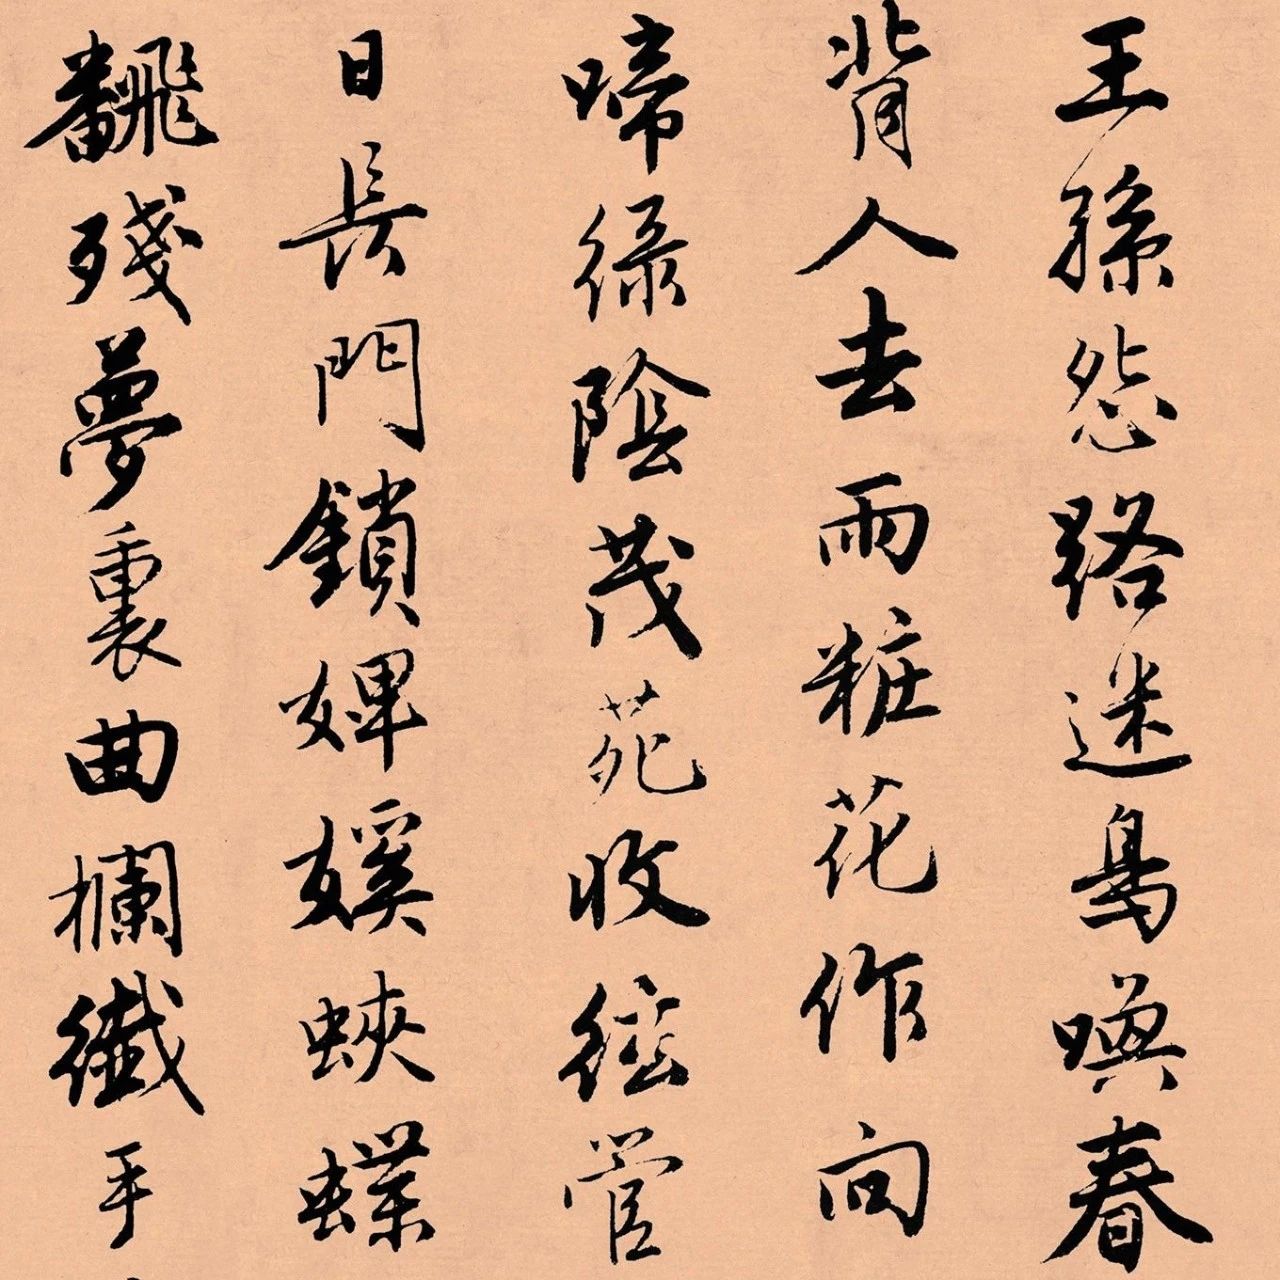 王孫怨路迷鳥喚春
背人去雨粧花作向
啼綠陰茂苑收絃管
日長門鎖婢㜎蛺蝶
飜殘夢裏曲欄纖手